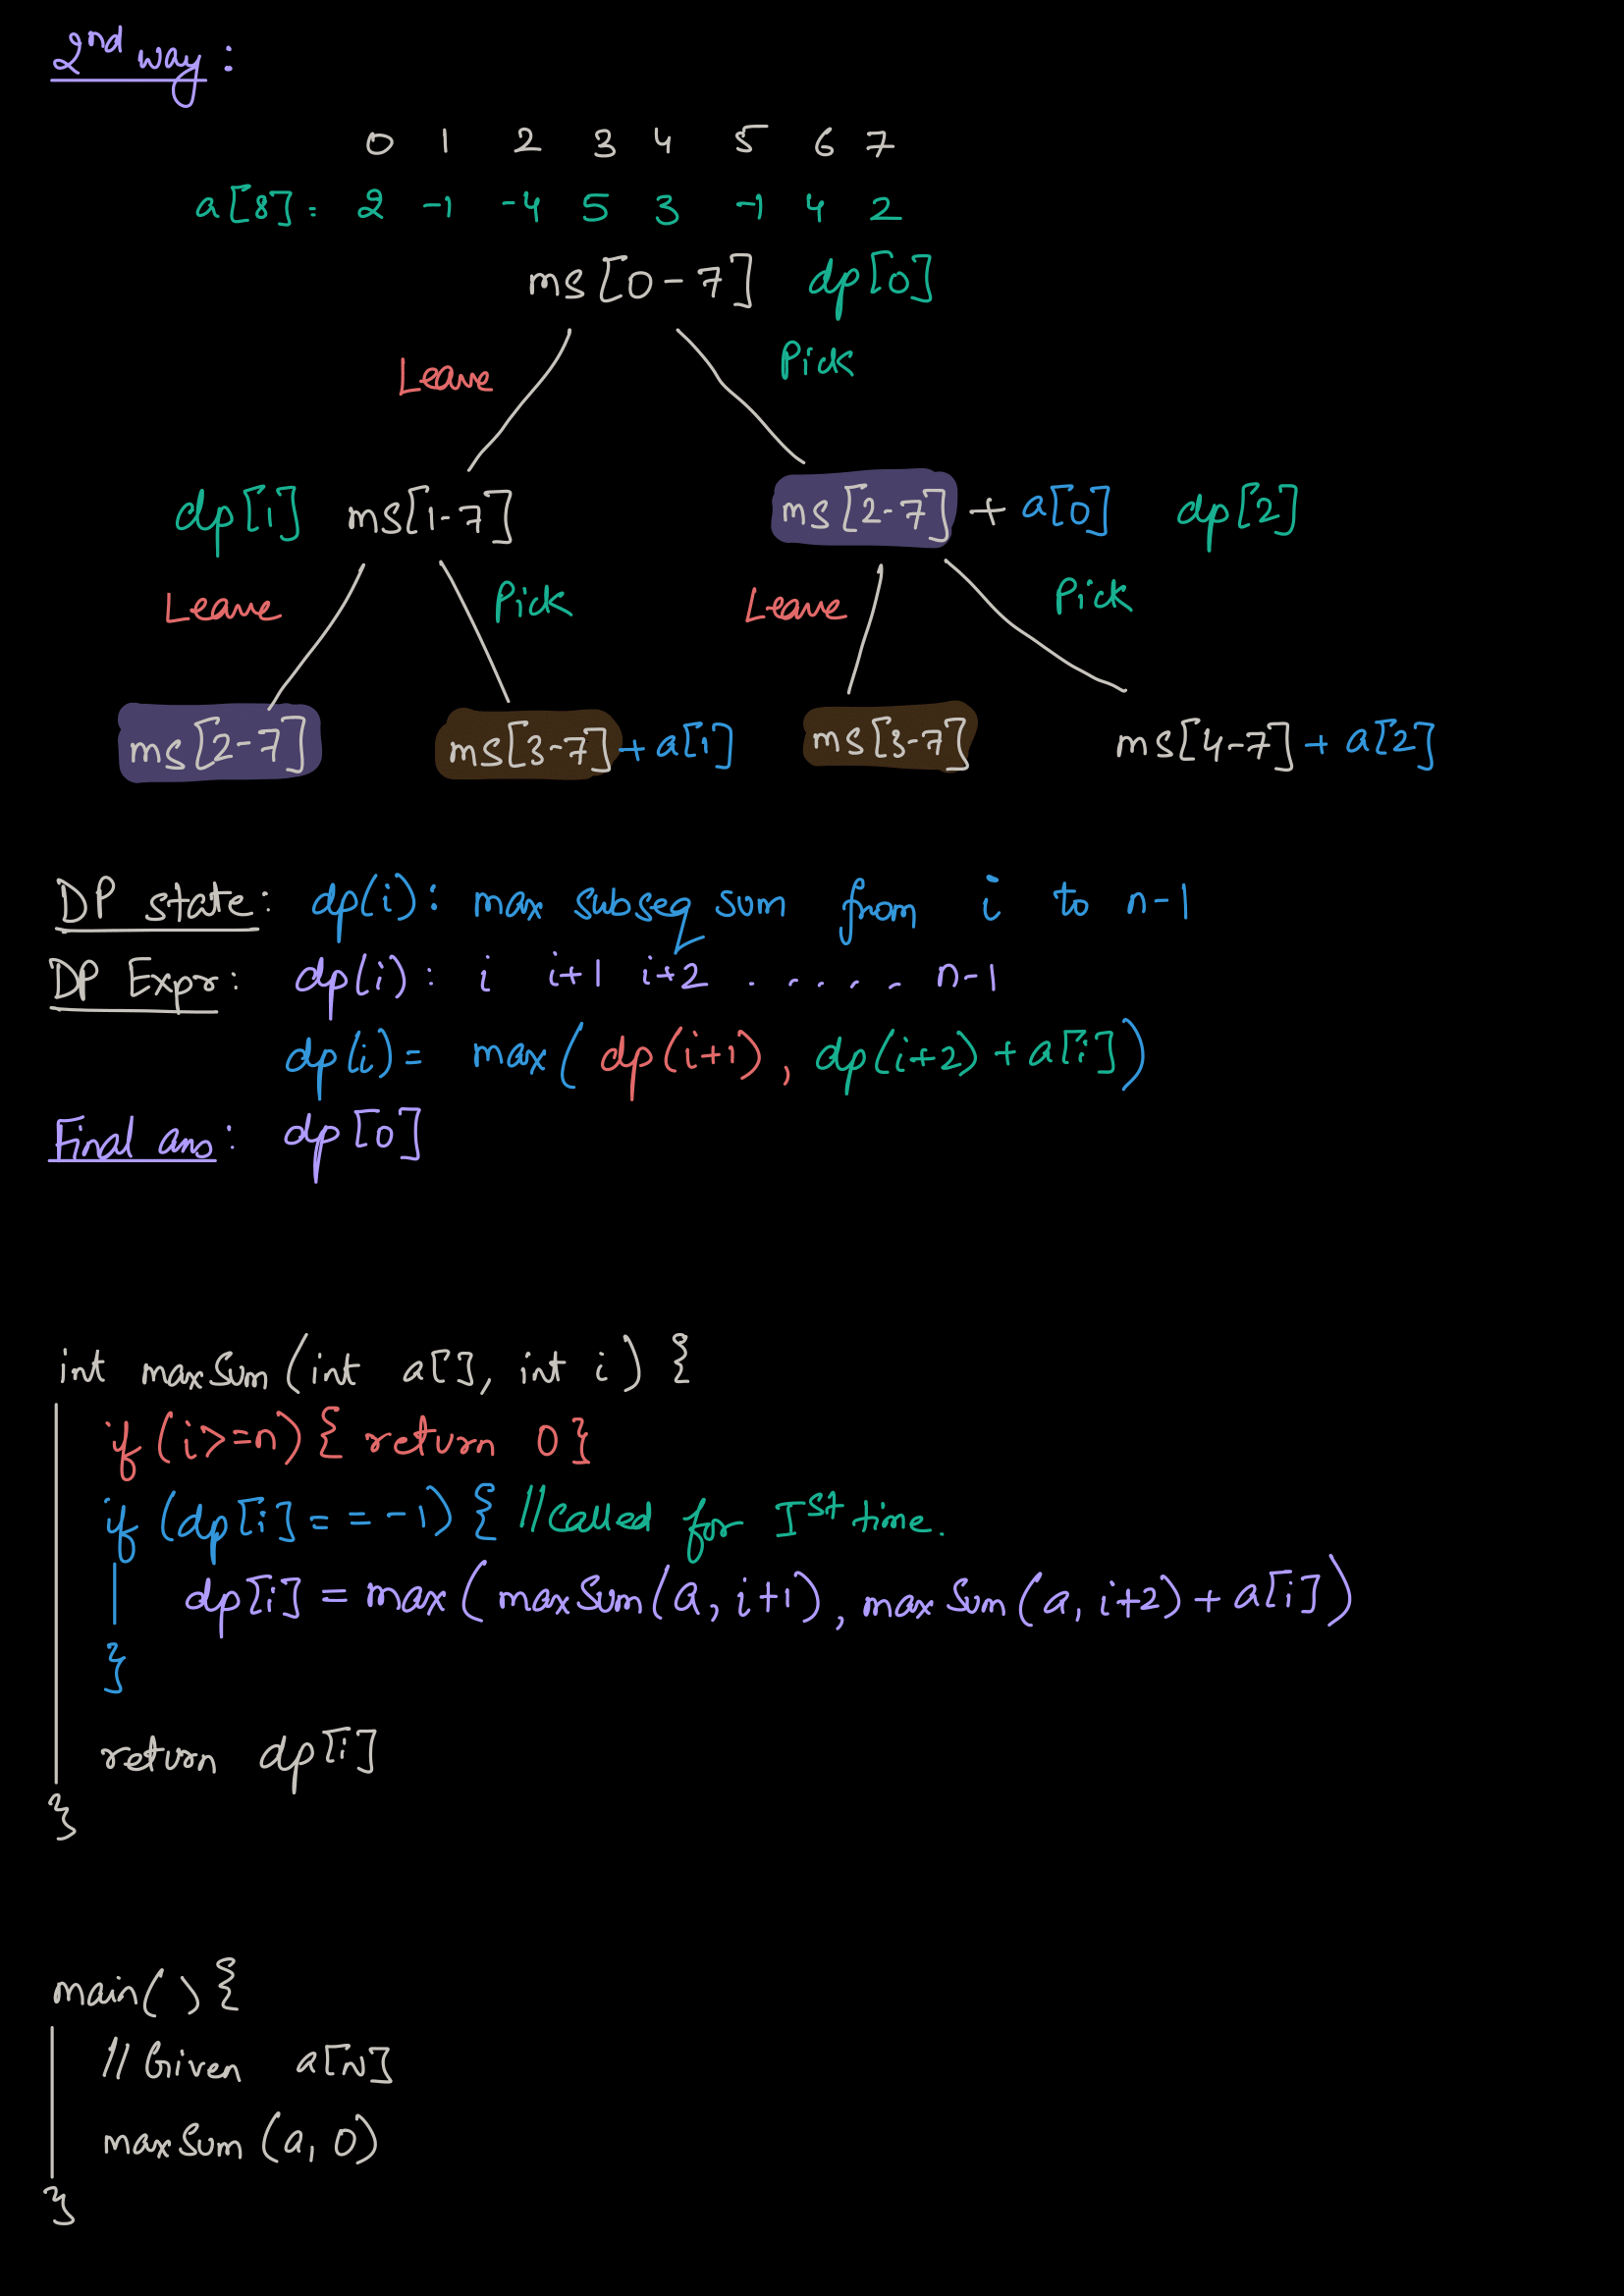 2nd way :
0 1 2 3 4 5 6 7
a[8]: 2 -1 -4 5 3 -1 4 2
ms[0-7] dp[0]
Leave Pick
dp[1] ms[1-7] ms[2-7] + a[0] dp[2]
Leave Pick Leave Pick
ms[2-7] ms[3-7] + a[1] ms[3-7] ms[4-7] + a[2]
DP state: dp(i): max subseq sum from i to n-1
DP Expr: dp(i): i i+1 i+2 . . . . . n-1
dp(i)= max( dp(i+1), dp(i+2) + a[i])
Final ans: dp[0]
int maxSum(int a[], int i) {
if (i>=n) { return 0}
if (dp[i]==-1) { //Called for Ist time.
dp[i] = max( maxSum(a, i+1), maxSum(a, i+2) + a[i])
}
return dp[i]
}
main( ) {
// Given a[N]
maxSum (a, 0)
}